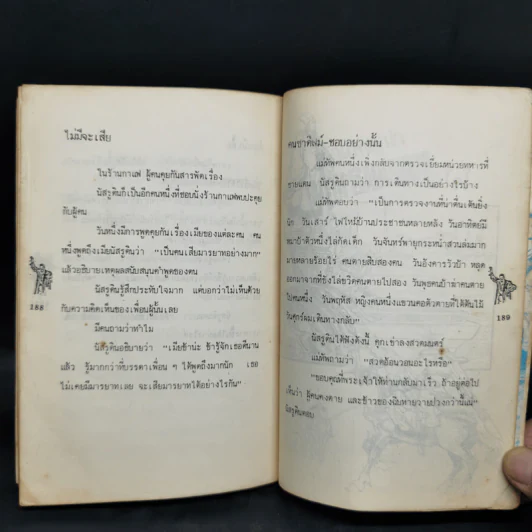 ไม่มีจะเสีย
ในร้านกาแฟ ผู้คนคุยกันสารพัดเรื่อง
นัสรูดินก็เป็นอีกคนหนึ่งที่ชอบนั่งร้านกาแฟพบปะคุย
กับผู้คน
วันหนึ่งมีการพูดคุยกันเรื่องเมียของแต่ละคน คน
หนึ่งพูดถึงเมียนัสรูดินว่า "เป็นคนเสียมารยาทอย่างมาก"
แล้วอธิบายเหตุผลสนับสนุนคำพูดของตน
นัสรูดินรู้สึกประทับใจมาก แต่บอกว่าไม่เห็นด้วย
กับความคิดเห็นของเพื่อนผู้นั้นเลย
มีคนถามว่าทำไม
นัสรูดินอธิบายว่า "เมียข้าน่ะ ข้ารู้จักเธอดีนาน
แล้ว รู้มากกว่าที่บรรดาเพื่อน ๆ ได้พูดถึงมากนัก เธอ
ไม่เคยมีมารยาทเลย จะเสียมารยาทได้อย่างไรกัน"
188
คนชาติแม้-ชอบอย่างนั้น
แม่ทัพคนหนึ่งเพิ่งกลับจากตรวจเยี่ยมหน่วยทหารที่
ชายแดน นัสรูดินถามว่า การเดินทางเป็นอย่างไรบ้าง
แม่ทัพตอบว่า "เป็นการตรวจงานที่น่าตื่นเต้นยิ่ง
นัก วันเสาร์ ไฟไหม้บ้านประชาชนหลายหลัง วันอาทิตย์มี
หมาบ้าตัวหนึ่งไล่กัดเด็ก วันจันทร์พายุกระหน้าสวนล้มมาก
มายหลายร้อยไร่ คนตายสิบสองคน วันอังคารวัวบ้า หลุด
ออกมาจากที่ขังไล่ขวิดคนตายไปสอง วันพุธคนบ้าฆ่าคนตาย
ไปคนหนึ่ง วันพฤหัส หญิงคนหนึ่งแขวนคอตัวตายที่ใต้ต้นไม้
วันศุกร์ผมเดินทางกลับ"
นัสรูดินได้ฟังดังนี้ คุกเข่าลงสวดมนตร์
แม่ทัพถามว่า "สวดอ้อนวอนอะไรหรือ"
"ขอบคุณที่พระเจ้าให้ท่านกลับมาเร็ว ถ้าอยู่ต่อไป
เห็นว่า ผู้คนคงตาย และข้าวของฉิบหายวายปวงกว่านี้แน่"
นัสรูดินตอบ
189